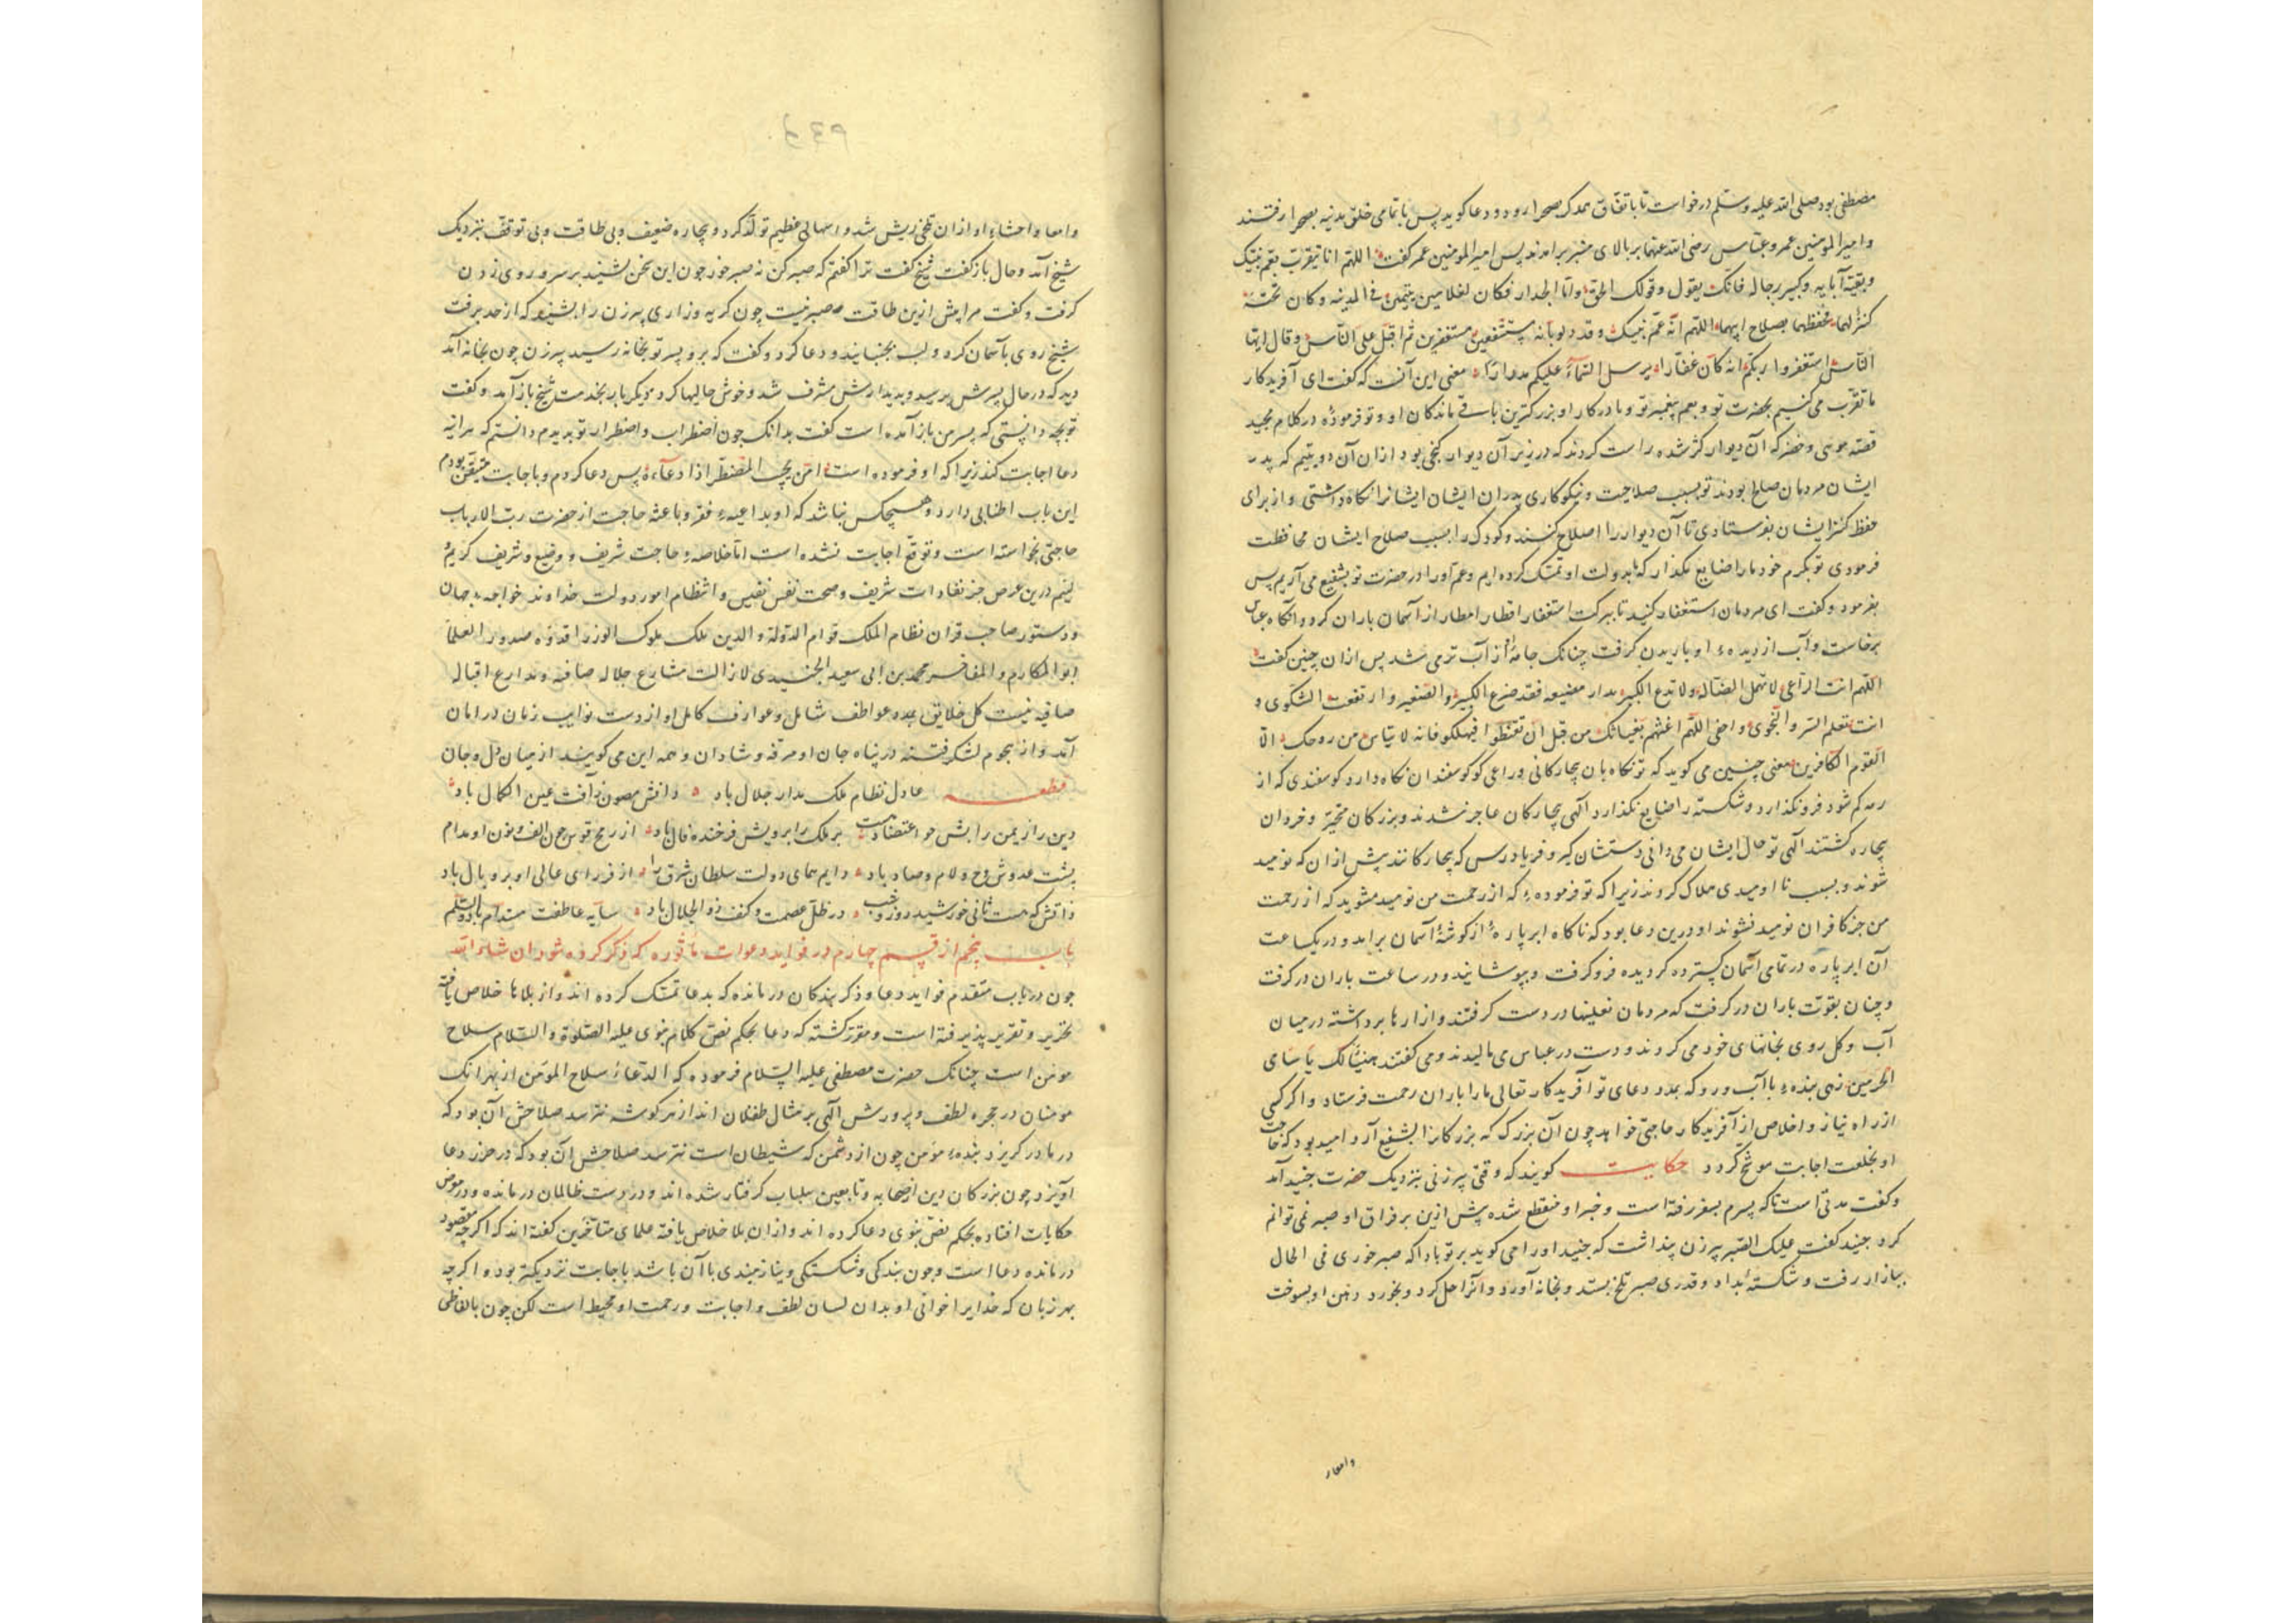 مصطفی بود صلی الله علیه وسلم درخواست تا باتفاق همدگر بصحرا رود و دعا گوید پس با تمامی خلق مدینه بصحرا رفتند
وامیر المومنین عمر وعباس رضی الله عنهما بر بالای منبر برامدند پس امیر المومنین عمر گفت اللهم انا نتقرب بعم نبیک
وبقیة آبایه وکبیر رجاله فانک یقول وقولک الحق واما الجدار فکان لغلامین یتیمین فی المدینه وکان تحته
کنز لهما فحفظتهما بصلاح ابیهما اللهم انه عم نبیک وقد دلونا به مستشفعین مستغفرین ثم اقبل علی الناس وقال ایها
الناس استغفروا ربکم انه کان غفارا یرسل السماء علیکم مدرارا معنی این آنست که گفت ای آفریدکار
ما تقرب می کنیم بحضرت تو وبعم پیغمبر تو و مادر کار او بزرکترین باقی ماندکان او وتو فرموده در کلام مجید
قصه موسی وخضر که آن دیوار کژ شده راست کردند که در زیر آن دیوار کنجی بود ازان آن دو یتیم که پدر
ایشان مردمان صالح بودند تو بسبب صلاحیت ونیکوکاری پدران ایشان ایشانرا نکاه داشتی واز برای
حفظ کنز ایشان بفرستادی تا آن دیوار را اصلاح کنند وکودک را بسبب صلاح ایشان محافظت
فرمودی تو بکرم خود ما را ضایع مکذار که بدولت او تمسک کرده ایم وعم او را در حضرت تو بشفیع می آریم پس
بفرمود وگفت ای مردمان استغفار کنید تا ببرکت استغفار اقطار امطار از آسمان باران کردد وانکاه عباس
برخاست وآب از دیدهء او باریدن کرفت چنانک جامهٔ از آب تر می شد پس ازان چنین گفت
اللهم انت الراعی لا تهمل الضاله ولا تدع الکبیر بدار مضیعه فقد ضرع الکبیر والصغیر وارتفعت الشکوی و
انت تعلم السر والنجوی واخفی اللهم اغثهم بغیاثک من قبل ان تقنطوا فیهلکو فانه لا ییاس من روحک الا
القوم الکافرین معنی چنین می کوید که تو نکاه بان بیچارکانی وراعی کو کوسفندان نکاه دارد کوسفندی که از
رمه کم شود فرونکذارد وشکسته را ضایع نکذارد الهی بیچارکان عاجز شدند وبزرکان متحیر وخردان
بیچاره کشتند الهی تو حال ایشان می دانی دستشان کیر وفریاد رس که بیچارکانند پیش ازان که نومید
شوند وبسبب نا امیدی هلاک کردند زیرا که تو فرمودهء که از رحمت من نومید مشوید که از رحمت
من جز کافران نومید نشوند او درین دعا بود که ناکاه ابر پارهٔ از کوشهٔ آسمان برامد ودر یکساعت
آن ابر پاره در تمامی آسمان کسترده کردیده فرو کرفت وبپوشانید ودر ساعت باران در کرفت
وچنان بقوت باران در کرفت که مردمان نعلینها در دست کرفتند وازارها برداشته در میان
آب وکل روی بخانهای خود می کردند ودست در عباس می مالیدند ومی گفتند هنیئا لک یا ساقی
الحرمین زهی بندهء با آب ورو که بمدد دعای تو آفریدکار تعالی ما را باران رحمت فرستاد واکر کسی
از راه نیاز واخلاص از آفریدکار حاجتی خواهد چون آن بزرک که بزرکانرا بشفیع آرد امید بود که حاجت
او بخلعت اجابت موشح کردد حکایت کویند که وقتی پیر زنی بنزدیک حضرت جنید آمد
وگفت مدتی است تا که پسرم بسفر رفته است وخبر او منقطع شده پیش ازین بر فراق او صبر نمی توانم
کرد جنید گفت علیک الصبر پیر زن پنداشت که جنید اورا می کوید بر تو بادا که صبر خوری فی الحال
ببازار رفت وشکسته بداد وقدری صبر تلخ بستد وبخانه آورد وانرا حل کرد وبخورد دهن او بسوخت
وامعار
وامعا واحشاء او ازان تلخی ریش شد واسهالی عظیم تولد کرد وبیچاره ضعیف وبی طاقت وبی توقف بنزدیک
شیخ آمد وحال باز گفت شیخ گفت ترا گفتم که صبر کن نه صبر خور چون این سخن بشنید بر سر وروی زدن
کرفت وگفت مرا پیش ازین طاقت صبر نیست چون کریه وزاری پیر زن را بشنید که از حد برفت
شیخ روی بآسمان کرد ولب بجنبانید ودعا کرد وگفت که برو پسر تو بخانه رسید پیر زن چون بخانه آمد
دید که در حال پسرش برسید وبدیدارش مشرف شد وخوش حالیها کرد دیکر بار بخدمت شیخ باز آمد وگفت
تو بچه دانستی که پسر من باز آمده است گفت بدانک چون اضطراب واضطرار تو بدیدم دانستم که هرآینه
دعا اجابت کند زیرا که او فرموده است امن یجیب المضطر اذا دعاه پس دعا کردم وباجابت متیقن بودم
این باب اطنابی دارد وهیچکس نباشد که او بداعیهء فقر وباعثه حاجت از حضرت رب الارباب
حاجتی نخواسته است وتوقع اجابت نشده است اما خلاصهء حاجت شریف ووضیع وشریف کریم
لئیم درین عرض جز نفاذ ات شریف وصحت نفس نفیس وانتظام امور دولت خداوند خواجه جهان
ودستور صاحب قران نظام الملک قوام الدولة والدین ملک ملوک الوزرا قدوه صدور العلما
ابو المکارم والمفاخر محمد بن ابی سعید الجنیدی لا زالت مشارع جلاله صافیه ومدارع اقباله
ضافیه نیست کل خلایق بمدد عواطف شامل وعوارف کامل او از دست نوایب زمان در امان
آمد واز هجوم لشکر فتنه در پناه جان او مرفه وشادان وهمه این می کویند از میان دل وجان
قطعه عادل نظام ملک مدار جلال باد ذاتش مصون ز آفت عین الکمال باد
دین را ز یمن رایش چو اعتضادهاست بر ملک را برویش فرخنده فال باد از رمح قوس چون الف ونون او مدام
پشت عدوش وخ ولام وصاد باد دایم همای دولت سلطان شرق را از فر رای عالی او پر وبال باد
ذاتش که هست ثانی خورشید روز وشب در ظل عصمت وکنف ذو الجلال باد سایه عاطفت مستدام بالدوله والسلم
باب پنجم از قسم چهارم در فواید دعوات ماثوره که ذکر کرده شود ان شاء الله
چون در باب متقدم فواید دعا وذکر بندکان درمانده که بدعا تمسک کرده اند واز بلاها خلاص یافته
تحریر وتقریر پذیرفته است ومقرر کشته که دعا بحکم نص کلام نبوی علیه الصلوة والسلام سلاح
مومن است چنانک حضرت مصطفی علیه السلام فرموده که الدعاء سلاح المومن از بهر انک
مومنان در حجره لطف وپرورش الهی بر مثال طفلان اند از هر کوشه نترسد صلاحش آن بود که
در مادر کریزد بندهء مومن چون از دشمن که شیطان است بترسد صلاحش آن بود که در حرز دعا
آویزد چون بزرکان دین از صحابه وتابعین سلباب کرفتار شده اند ودر دست ظالمان درمانده ودر معرض
حکایات افتاده بحکم نص نبوی دعا کرده اند وازان بلا خلاص یافته علمای متاخرین گفته اند که اکر چه مقصود
درمانده دعا است وچون بندکی وشکستکی ونیازمندی با آن باشد باجابت نزدیکتر بود واکر چه
بهر زبان که خدایرا خوانی او بدان لسان لطف واجابت ورحمت او محیط است لکن چون بالفاظی